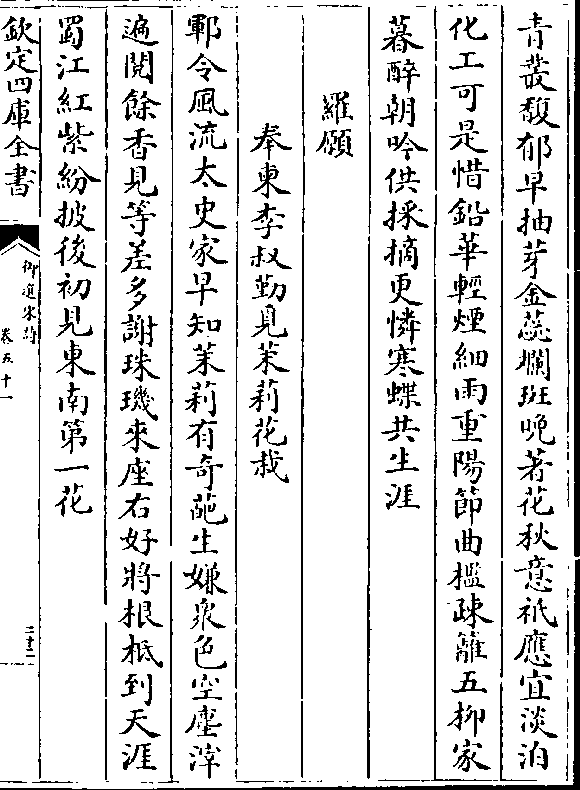 青叢馥郁早抽芽金蕊斕斑晚著花秋意祇應宜淡泊
化工可是惜鉛華輕煙細雨重陽節曲檻疎籬五柳家
暮醉朝吟供採摘更憐寒蝶共生涯
羅願
奉柬李叔勤覓茉莉花栽
鄆令風流太史家早知茉莉有奇葩生嫌衆色空塵滓
遍閱餘香見等差多謝珠璣來座右好將根柢到天涯
蜀江紅紫紛披後初見東南第一花
欽定四庫全書
御選宋詩
卷五十一
二十三